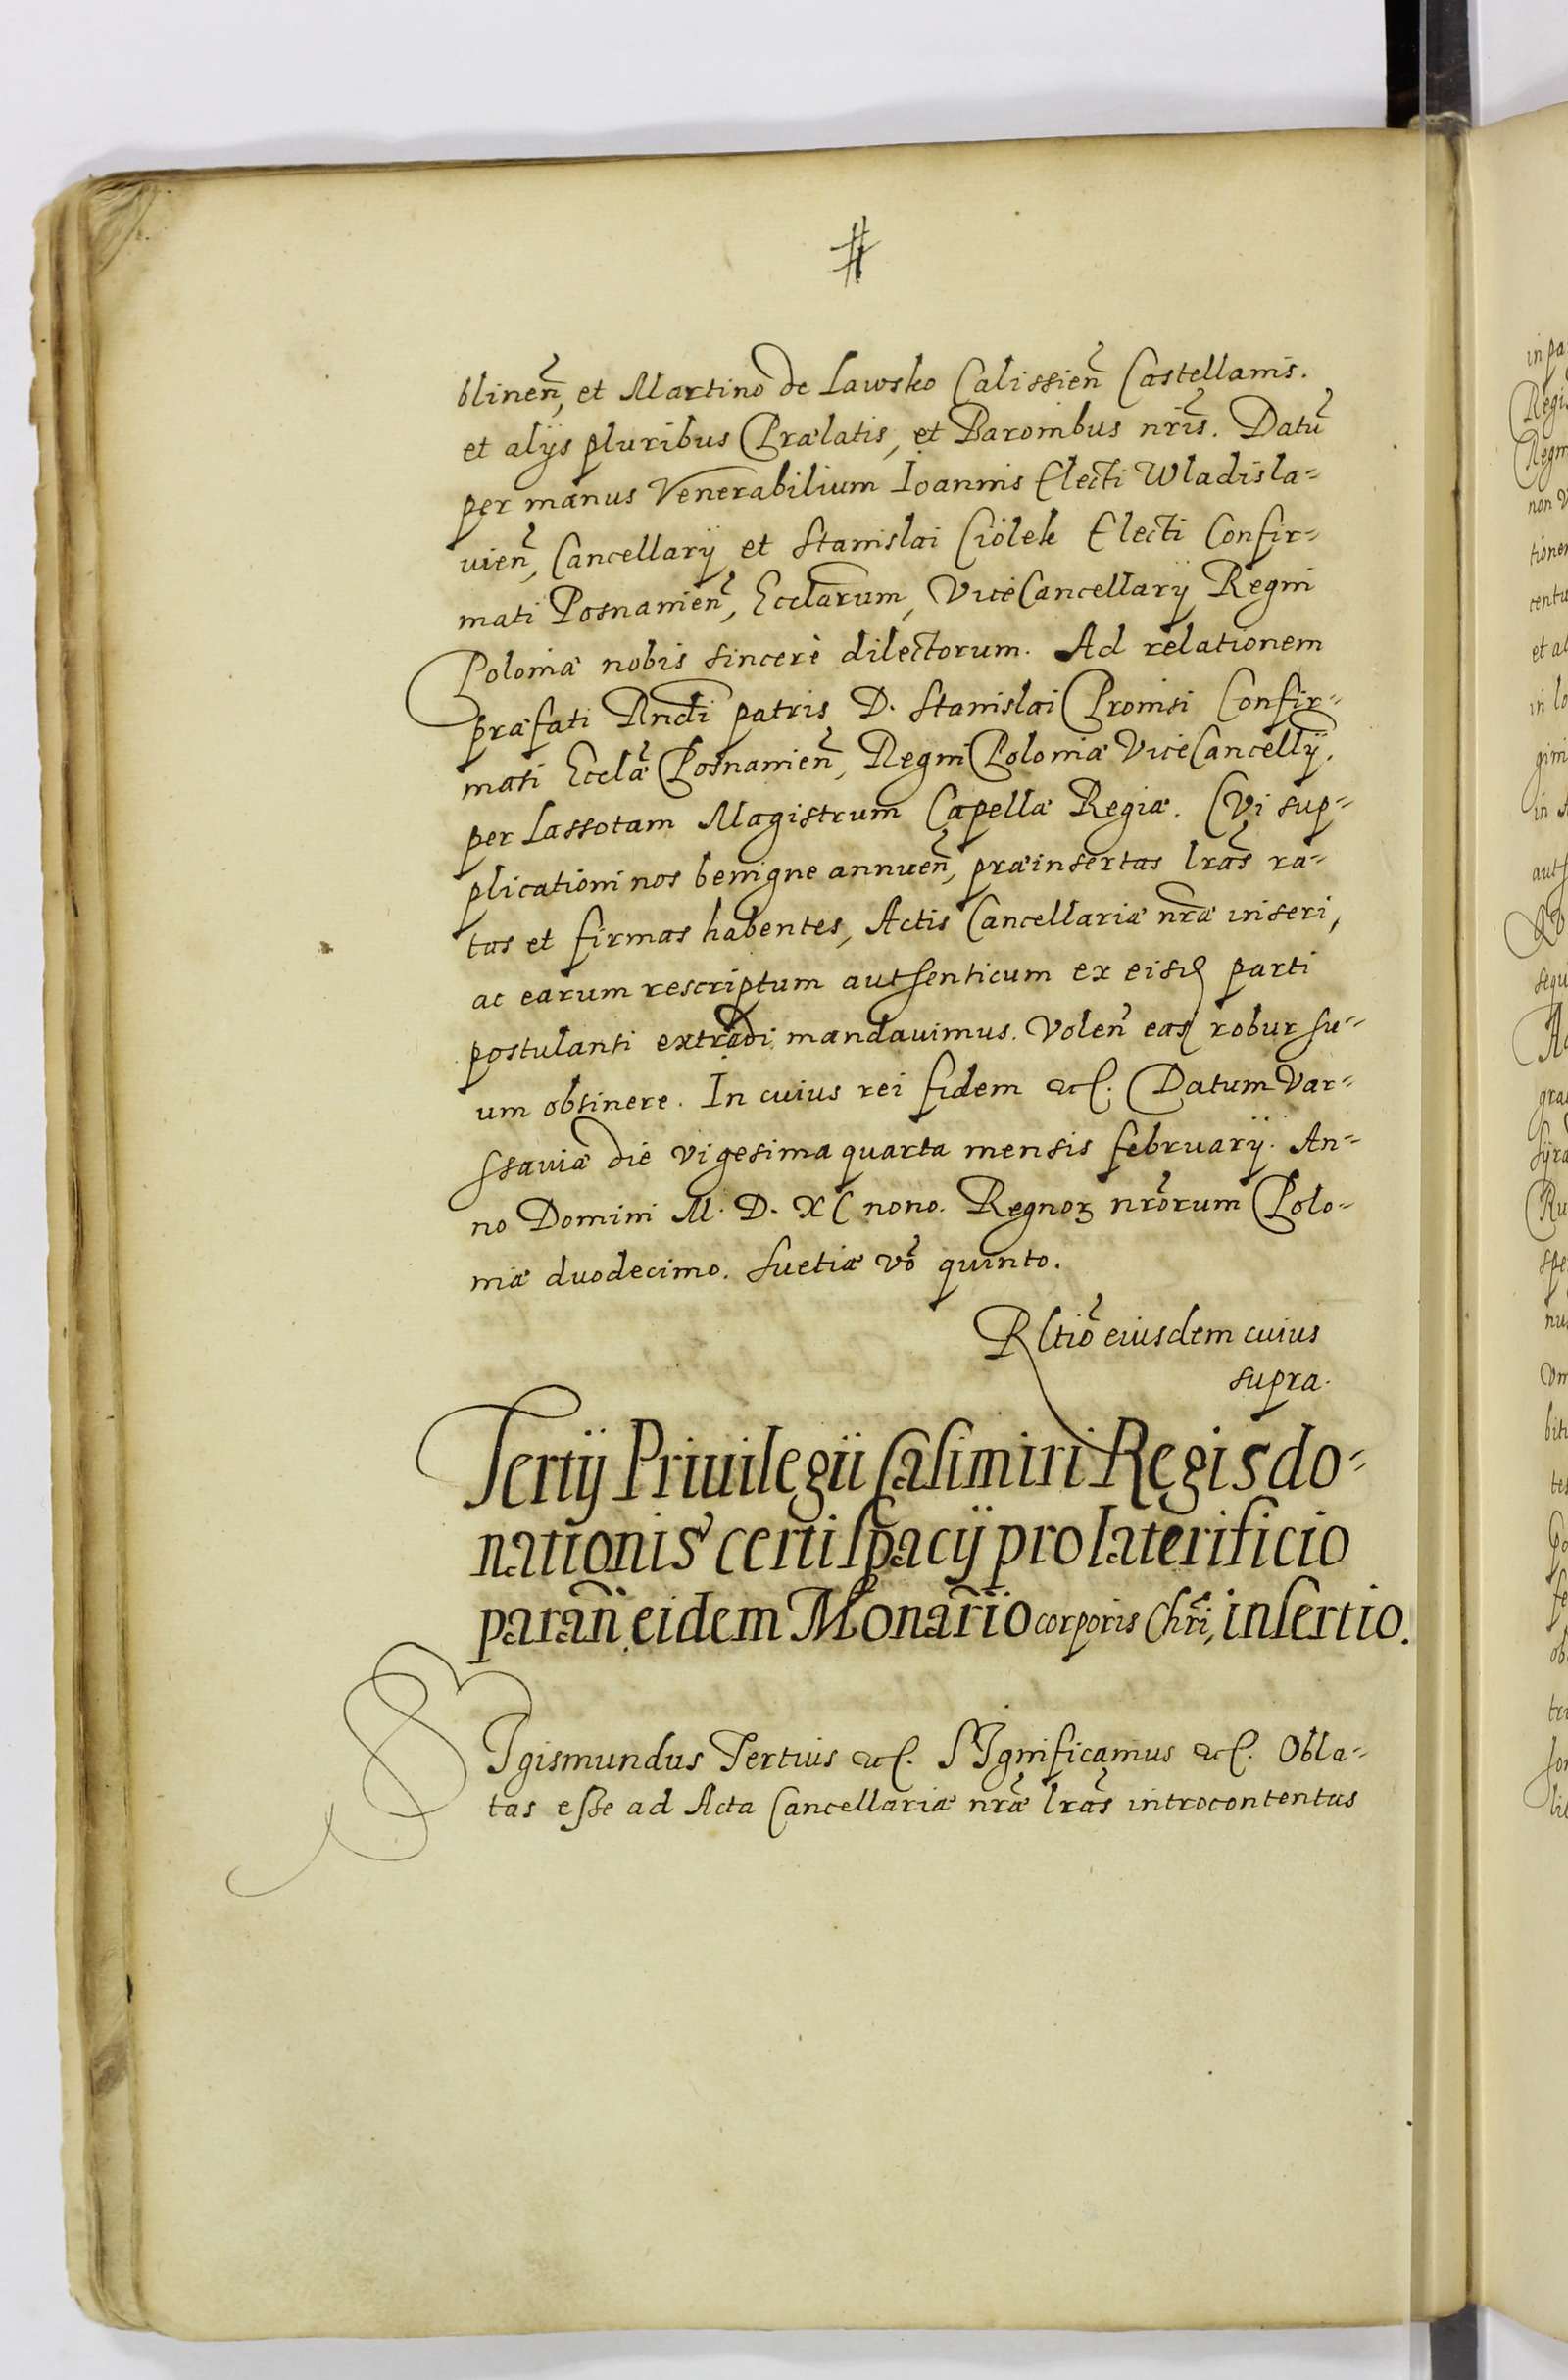 #
blinen̄, et Martino de Lawsko Calissien̄ Castellanis.
et alijs pluribus Prælatis, et Baronibus nrı̄s. Datū
per manus Venerabilium Ioannis Electi Wladisla-
uien̄, Cancellarij et Stanislai Ciolek Electi Confir-
mati Posnanien̄, Ecclārum, ViceCancellarij Regni
Poloniæ nobis sincerè dilectorum. Ad relationem
præfati Rndı̄ patris D. Stanislai Promsi Confir-
mati Ecclǣ Posnanien̄, Regni Poloniæ ViceCancellı̄j.
per Lassotam Magistrum Capellæ Regiæ. CVi sup-
plicationi nos benigne annuen̄, præinsertas lrās ra-
tas et firmas habentes, Actis Cancellariæ nrǣ inseri,
ac earum rescriptum authenticum ex eisd parti
postulanti extradi mandauimus. Volen̄ easd robur su-
um obtinere. In cuius rei fidem &c. Datum Var-
ssauiæ die vigesima quarta mensis februarij. An-
no Domini M. D. XC nono. Regnoꝝ nrōrum Polo-
niæ duodecimo. Suetiæ vō quinto.
Rltiō eiusdem cuius
supra.
Tertij Priuilegii Casimiri Regis do-
nationis certi spacij pro laterificio
paran̄ eidem Monarı̄o corporis Chrı̄, insertio.
SIgismundus Tertius &c. SIgnificamus &c. Obla-
tas esse ad Acta Cancellariæ nrǣ lrās introcontentas
in pa
Regi
Regn
non v
tionem
centu
et al
in lo
gini
in
aut
sequi
gra
Ru
spe
bitu
tes